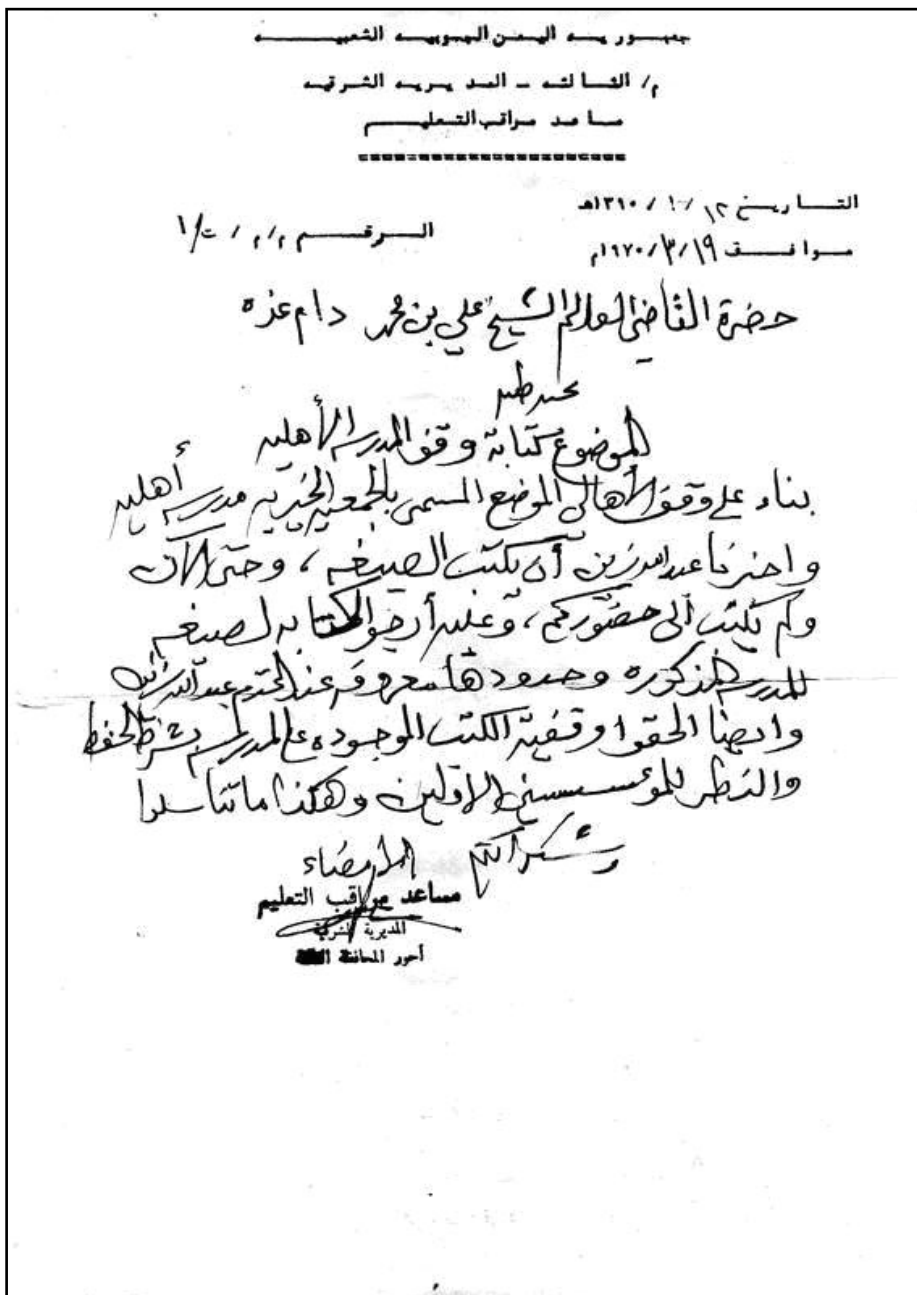 جمهوريه اليمن الجنوبيه الشعبيه
م/ الثالثه - المديريه الشرقيه
مساعد مراقب التعليم
التاريخ ١٢ / ١ / ١٣٩٠هـ
الرقم م/م / ت/١
موافق ١٩ /٣ /١٩٧٠م
حضرة القاضي العالم الشيخ علي بن محمد دام عزه
بعد
الموضوع كتابة وقف المدرسه الأهليه
بناء على وقف الأهالي الموضع المسمى بالجمعيه الخيريه مدرسه أهليه
واخبرنا عبدالله زين أن يكتب الصيغه ، وحتى الآن
ولم يكتب الى حضوركم ، وعليه أرجو الكتابه لصيغه
للمدرسه المذكوره وحدودها معروفه عند المحترم عبدالله زين
وايضا الحقوا وقفية الكتب الموجوده على المدرسه بشرط الحفظ
والنظر للمؤسسين الاولين وهكذا ما تناسلوا
وشكرا لكم
الامضاء
مساعد مراقب التعليم
المديرية الشرقية
أحور المحافظة